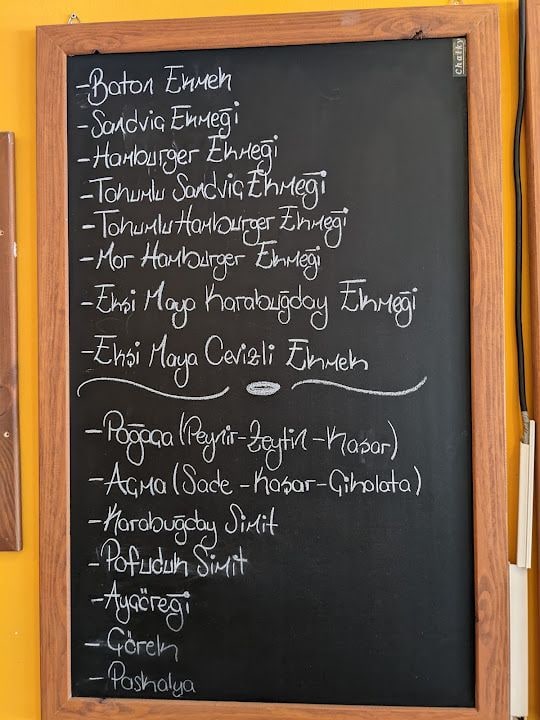 Chalky
-Baton Ekmek
-Sandviç Ekmeği
-Hamburger Ekmeği
-Tohumlu Sandviç Ekmeği
-Tohumlu Hamburger Ekmeği
-Mor Hamburger Ekmeği
-Ekşi Maya Karabuğday Ekmeği
-Ekşi Maya Cevizli Ekmek
-Poğaça (Peynir-Zeytin-Kaşar)
-Açma (Sade-Kaşar-Çikolata)
-Karabuğday Simit
-Pofuduk Simit
-Ayçöreği
-Çörek
-Paskalya